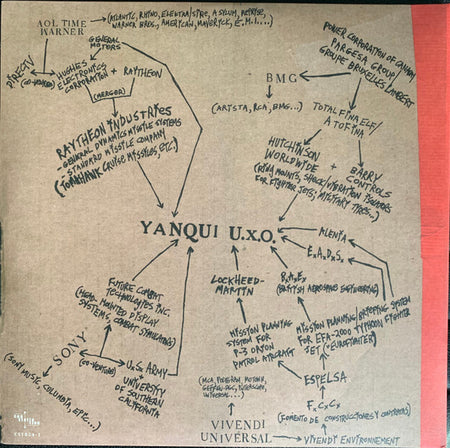 AOL TIME
WARNER
(ATLANTIC, RHINO, ELEKTRA/SIRE, ASYLUM, REPRISE,
WARNER BROS, AMERICAN, MAVERICK, E.M.I....)
GENERAL
MOTORS
DIRECTV
(CO-VENTURE)
HUGHES
ELECTRONICS
CORPORATION
+ RAYTHEON
(MERGER)
RAYTHEON INDUSTRIES
GENERAL DYNAMICS MISSILE SYSTEMS
- STANDARD MISSILE COMPANY
(TOMAHAWK CRUISE MISSILES, ETC)
POWER CORPORATION OF CANADA/
PARGESA GROUP/
GROUPE BRUXELLES LAMBERT
BMG
(ARISTA, RCA, BMG...)
TOTAL FINA ELF/
ATOFINA
HUTCHINSON
WORLDWIDE
+ BARRY
CONTROLS
(RING MOUNTS, SHOCK/VIBRATION ISOLATORS
FOR FIGHTER JETS, MILITARY TIRES...)
YANQUI U.X.O.
ALENIA
E.A.D.S.
LOCKHEED-
MARTIN
B.A.E.
(BRITISH AEROSPACE ENGINEERING)
FUTURE COMBAT
TECHNOLOGIES INC.
(HEAD MOUNTED DISPLAY
SYSTEMS, COMBAT SIMULATORS)
MISSION PLANNING
SYSTEM FOR
P-3 ORION
PATROL AIRCRAFT
MISSION PLANNING/BRIEFING SYSTEM
FOR EFA-2000 TYPHOON FIGHTER
JET ("EUROFIGHTER")
SONY
(CO-VENTURE)
U.S. ARMY
UNIVERSITY
OF SOUTHERN
CALIFORNIA
(SONY MUSIC, COLUMBIA, EPIC...)
ESPELSA
F.C.C.
(FOMENTO DE CONSTRUCCIONES Y CONTRATAS)
(MCA, POLYGRAM, MOTOWN,
GEFFEN-DGC, INTERSCOPE,
UNIVERSAL...)
VIVENDI
UNIVERSAL
VIVENDI ENVIRONNEMENT
CST024-2